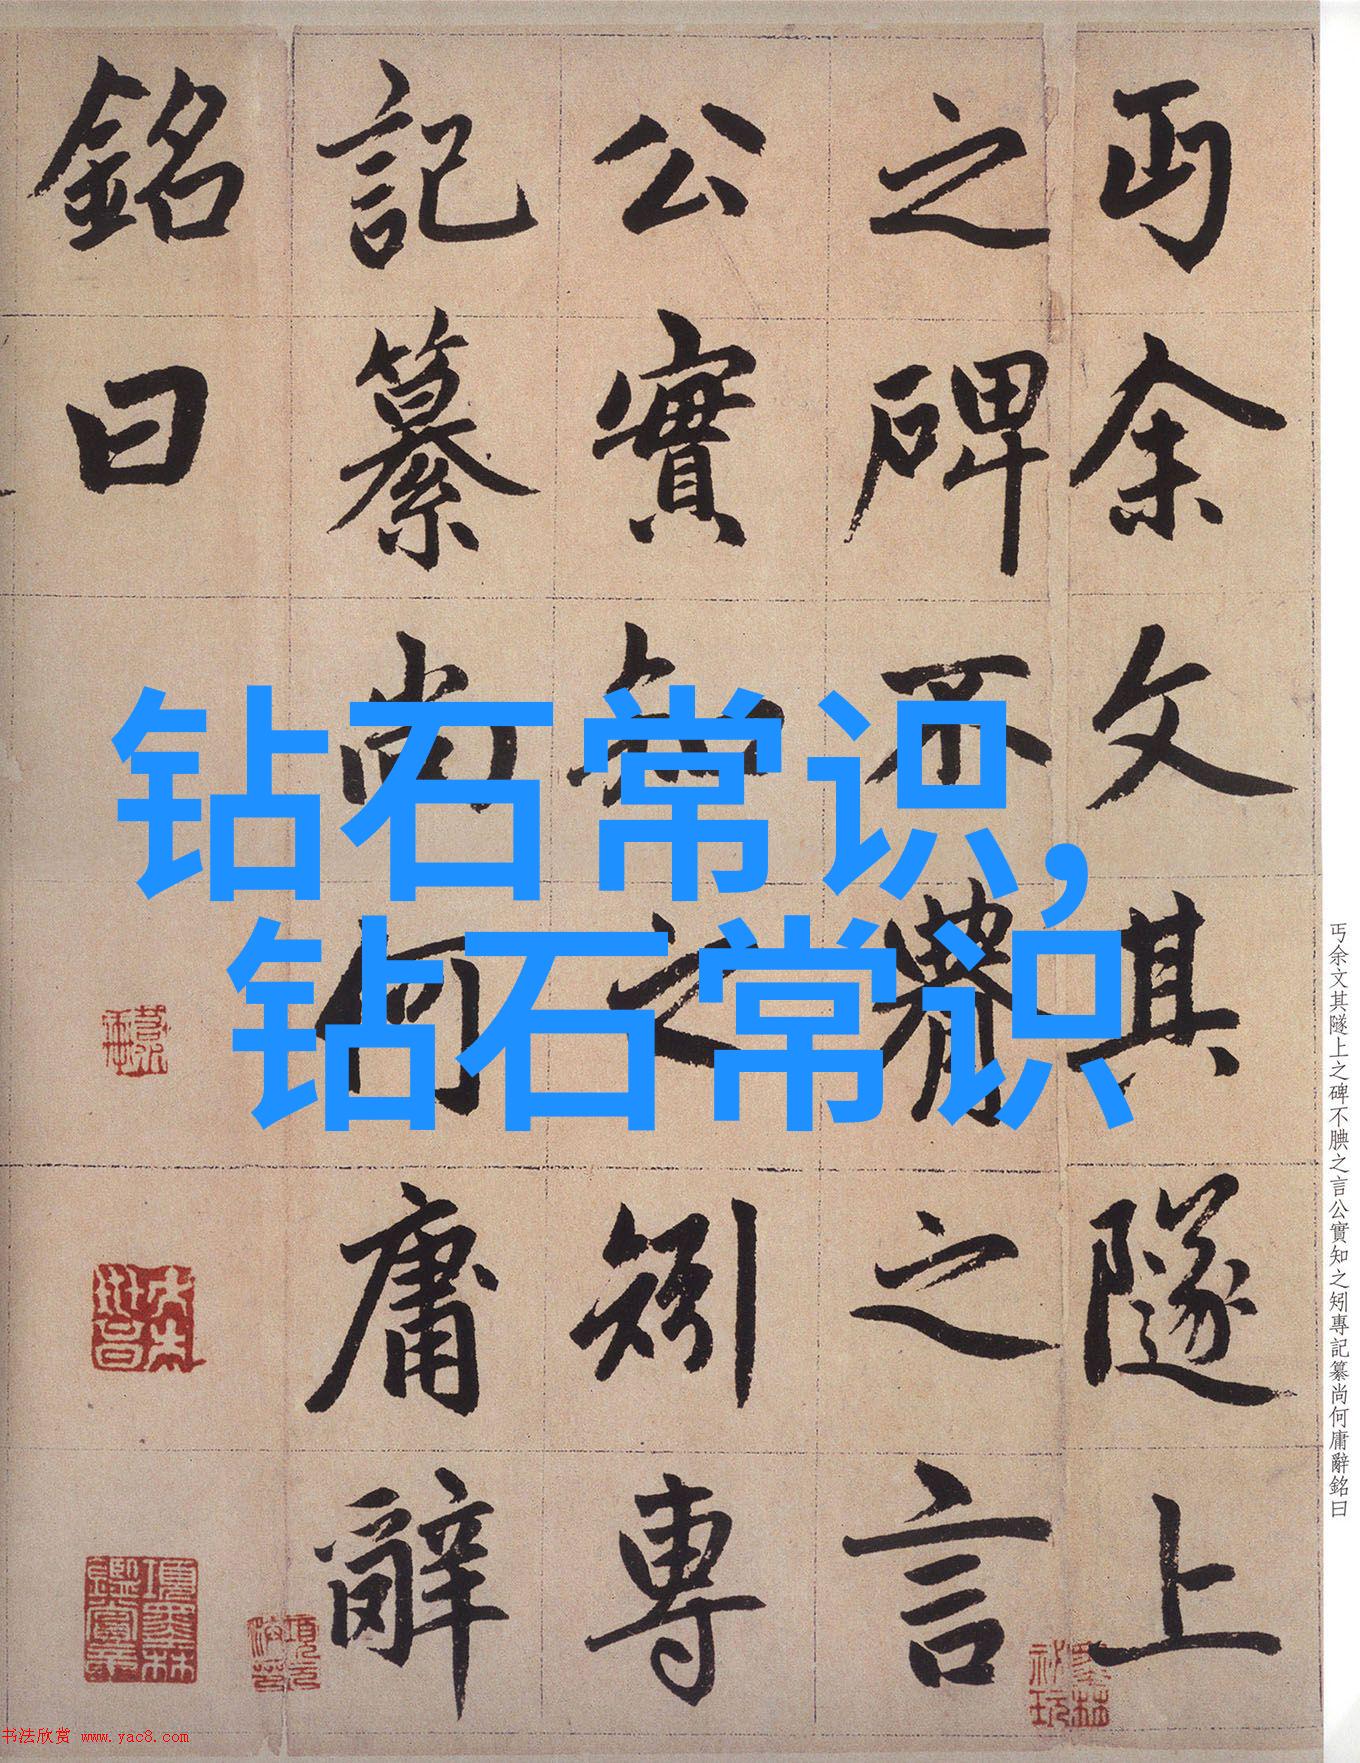 丐余文其隧上
之碑不腆之言
公實知之矧專
記纂尚何庸辭
銘曰
钻石常识,
钻石常识
丐余文其隧上之碑不腆之言公實知之矧專記纂尚何庸辭銘曰
項墨林鑑賞章
书法欣赏 www.yac8.com